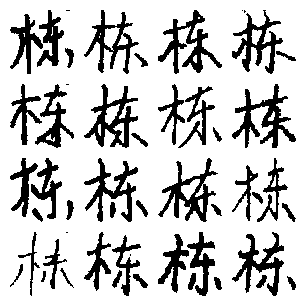 栋栋栋栋
栋栋栋栋
栋栋栋栋
栋栋栋栋